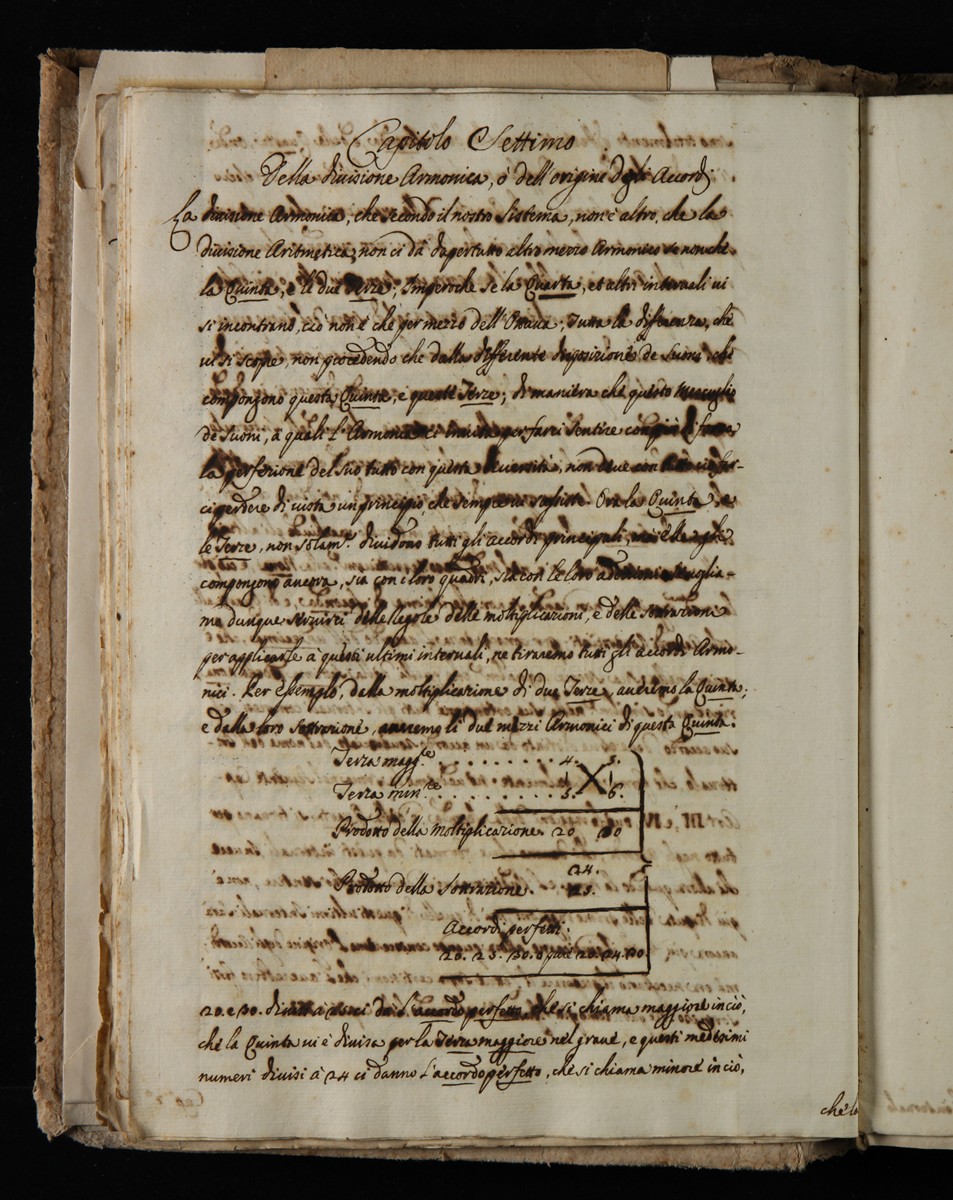 Capitolo Settimo
Della divisione Armonica, ò dell'origine degli Accordi
La divisione Armonica, che secondo il nostro Sistema, non è altro, che la
divisione Aritmetica, non ci dà dapertutto altro mezzo Armonico se non che
la Quinta, e le due Terze; Imperoche se la Quarta, et altri intervali vi
si incontrano, ciò non è che per mezzo dell'Ottava, tutta la differenza, che
vi si scopre, non procedendo che dalla differente disposizione de Suoni che
compongono questa Quinta, e queste Terze; di maniera che questo
de Suoni, à quali l'Armonia ci per farci sentire con più di forza
la perfezione del suo tutto con questa diversità, non deve con tutto ciò far-
ci perdere di vista un principio, che sempre vi susiste. Ora la Quinta, e
le Terze, non solam.te dividono tutti gli accordi principali, mà elle gli
compongono ancora, sia con i loro quadri, sia con le loro addizioni. Voglia-
mo dunque servirci delle Regole delle moltiplicazioni, e delle sottrazioni
per applicarse à questi ultimi intervali, ne tiraremo tutti gli accordi Armo-
nici. Per Esempio, dalla moltiplicazione di due Terze, averemo la Quinta;
e dalla loro Sottrazione, averemo li due mezzi Armonici di questa Quinta.
Terza magg.re . . . . . . . . . 4. 5.
Terza min.re . . . . . . . . . . 5. 6.
Prodotto della Moltiplicazione. 20. 30
Prodotto della Sottrazione. 24. 25.
Accordi perfetti.
20. 25. 30. è pure 20. 24. 30.
20. e 30. divisi à 25. ci dà l'accordo perfetto, che si chiama maggiore in ciò,
che la Quinta vi è divisa per la Terza maggiore nel grave, e questi medesimi
numeri divisi à 24 ci danno l'accordo perfetto, che si chiama minore in ciò,
che la